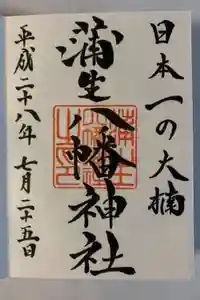 日本一の大楠
蒲生八幡神社
平成二十八年 七月二十五日